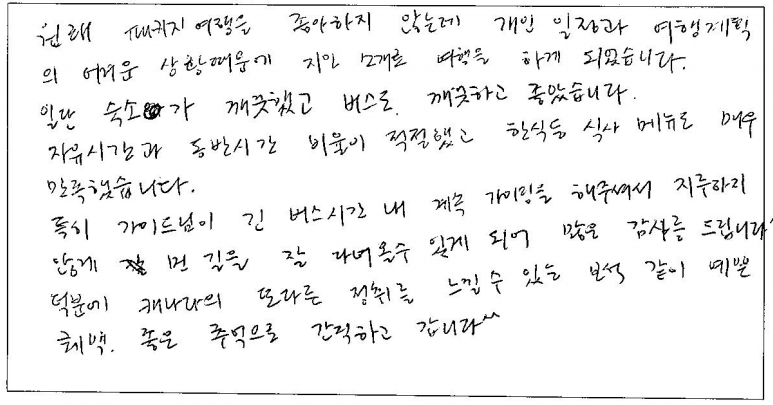 원래 패키지여행을 좋아하지 않는데 개인 일정과 여행계획
의 어려운 상황때문에 지인 소개로 여행을 하게 되었습니다.
일단 숙소가 깨끗했고 버스도 깨끗하고 좋았습니다.
자유시간과 동반시간 비율이 적절했고 한식등 식사 메뉴도 매우
만족했습니다.
특히 가이드님이 긴 버스시간 내 계속 가이딩을 해주셔서 지루하지
않게 먼 길을 잘 다녀올수 있게 되어 많은 감사를 드립니다^
덕분에 캐나다의 또다른 정취를 느낄 수 있는 보석 같이 예쁜
퀘백. 좋은 추억으로 간직하고 갑니다^^